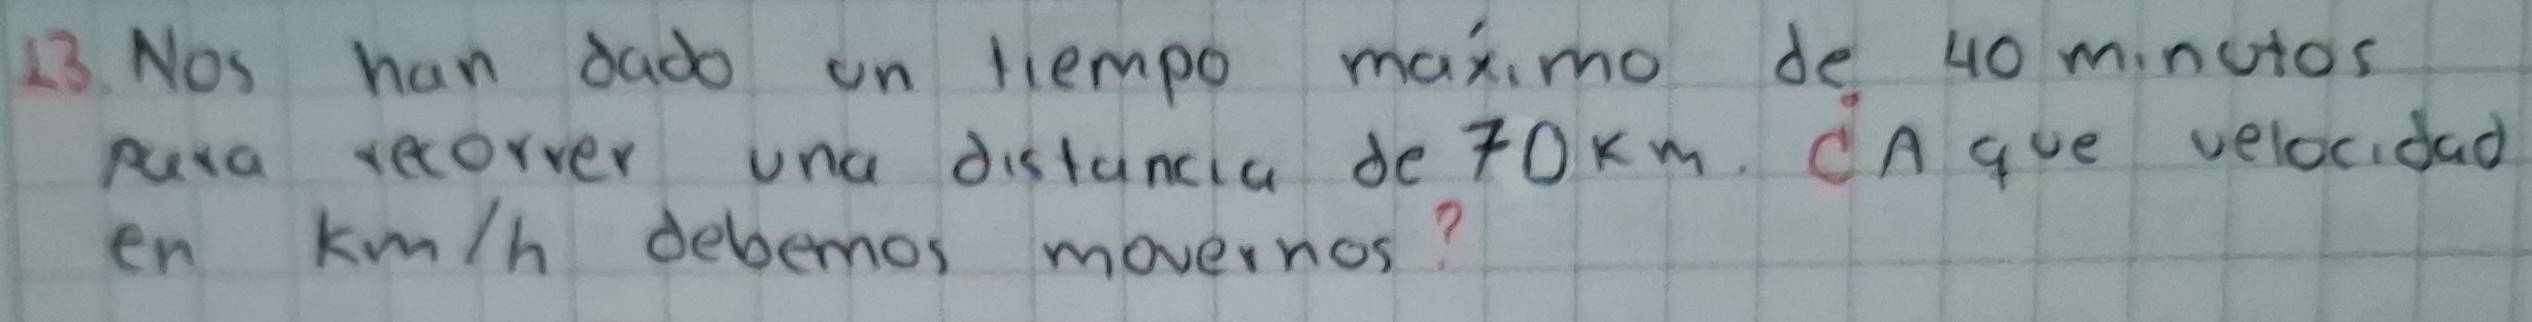 13. Nos han dado un tiempo máximo de 40 minutos
para recorrer una distancia de 70 Km. ¿A que velocidad
en Km/h debemos movernos?